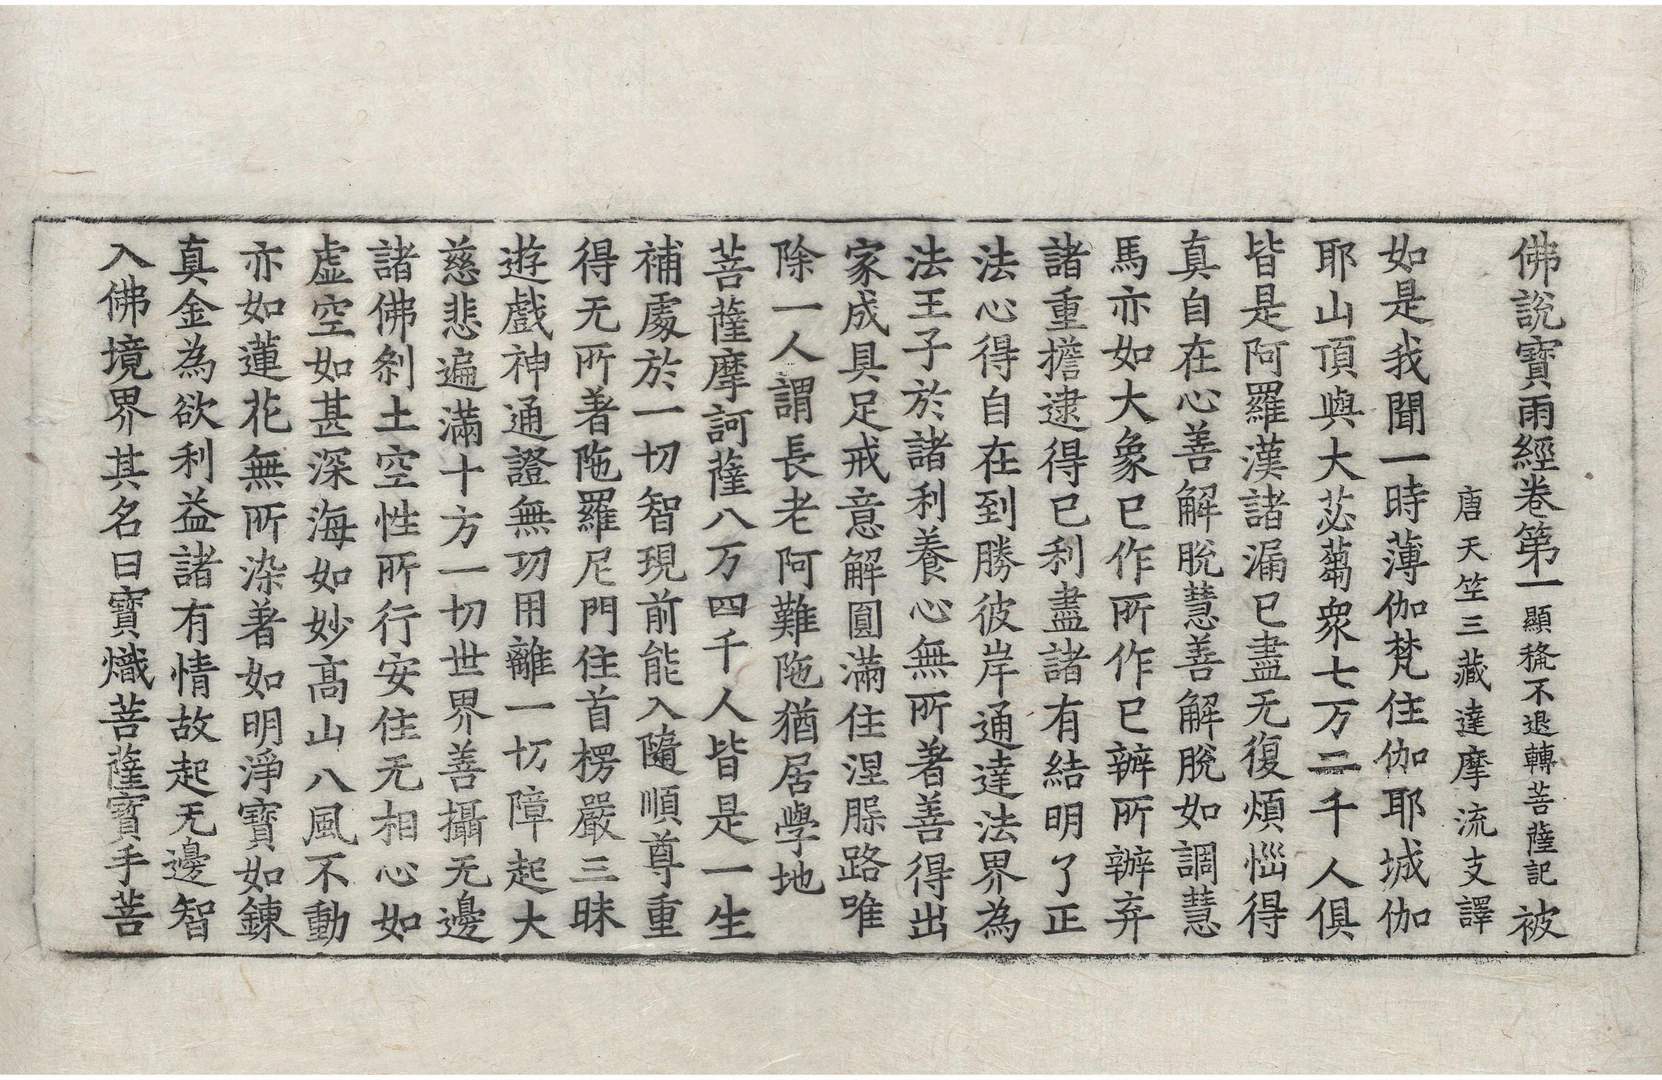 佛說寶雨經卷第一 顯授不退轉菩薩記 被
唐天竺三藏達摩流支譯
如是我聞一時薄伽梵住伽耶城伽
耶山頂與大苾蒭衆七万二千人俱
皆是阿羅漢諸漏已盡无復煩惱得
真自在心善解脫慧善解脫如調慧
馬亦如大象已作所作已辦所辦弃
諸重擔逮得已利盡諸有結明了正
法心得自在到勝彼岸通達法界為
法王子於諸利養心無所著善得出
家成具足戒意解圓滿住涅槃路唯
除一人謂長老阿難陁猶居學地
菩薩摩訶薩八万四千人皆是一生
補處於一切智現前能入隨順尊重
得无所著陁羅尼門住首楞嚴三昧
遊戲神通證無功用離一切障起大
慈悲遍滿十方一切世界善攝无邊
諸佛剎土空性所行安住无相心如
虛空如甚深海如妙高山八風不動
亦如蓮花無所染著如明淨寶如鍊
真金為欲利益諸有情故起无邊智
入佛境界其名曰寶熾菩薩寶手菩